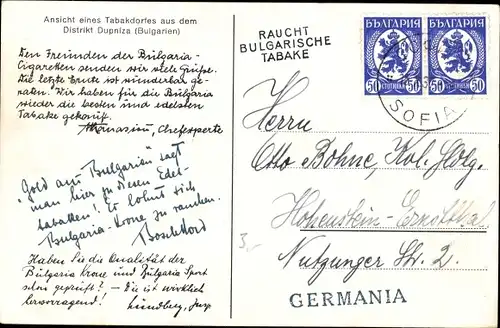 Ansicht eines Tabakdorfes aus dem
Distrikt Dupniza (Bulgarien)
Den Freunden der Bulgaria-
Cigaretten senden wir viele Grüße.
Die letzte Ernte ist wunderbar ge-
raten. Wir haben für die Bulgaria
wieder die besten und edelsten
Tabake gekauft.
Athanasiou, Chefexperte
"Gold aus Bulgarien" sagt
man hier zu diesen Edel-
tabaken! Es lohnt sich
Bulgaria-Krone zu rauchen.
Haben Sie die Qualität der
Bulgaria Krone und Bulgaria Sport
schon geprüft? – Sie ist wirklich
hervorragend!
RAUCHT
BULGARISCHE
TABAKE
БЪЛГАРИЯ
50 СТОТИНКИ 50
БЪЛГАРИЯ
50 СТОТИНКИ 50
SOFIA
Herrn
Otto Bohne, Kol. Hdlg.
Hohenstein-Ernstthal
Nutzunger Str. 2.
3,-
GERMANIA